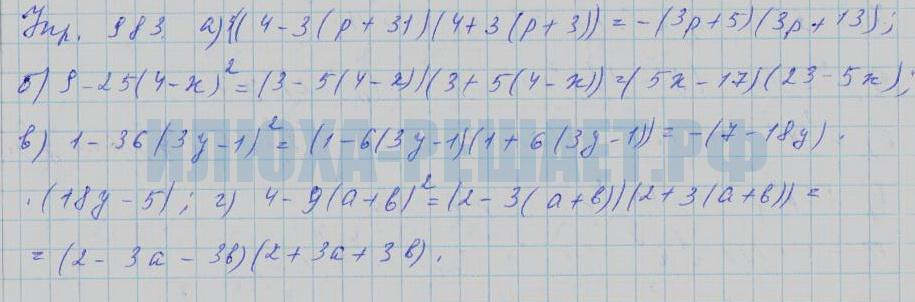 Упр. 983. а) ((4-3(p+31)(4+3(p+3)) = -(3p+5)(3p+13);
б) 9-25(4-x)² = (3-5(4-x))(3+5(4-x)) = (5x-17)(23-5x);
в) 1-36(3y-1)² = (1-6(3y-1)(1+6(3y-1)) = -(7-18y) .
.(18y-5); г) 4-9(a+b)² = (2-3(a+b))(2+3(a+b)) =
= (2-3a-3b)(2+3a+3b).
ИЛЮХА-РЕШАЕТ.РФ